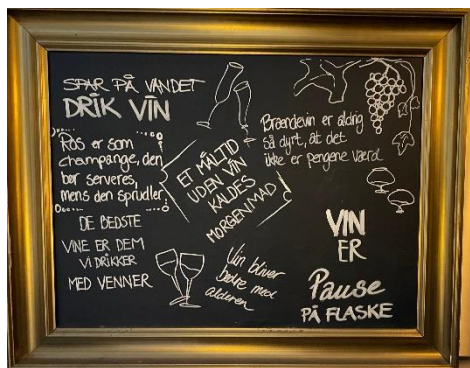 SPAR PÅ VANDET
DRIK VIN
Ros er som
champange, den
bør serveres,
mens den sprudler
DE BEDSTE
VINE ER DEM
VI DRIKKER
MED VENNER
ET MÅLTID
UDEN VIN
KALDES
MORGENMAD
Vin bliver
bedre med
alderen
Brændevin er aldrig
så dyrt, at det
ikke er pengene værd
VIN
ER
Pause
PÅ FLASKE